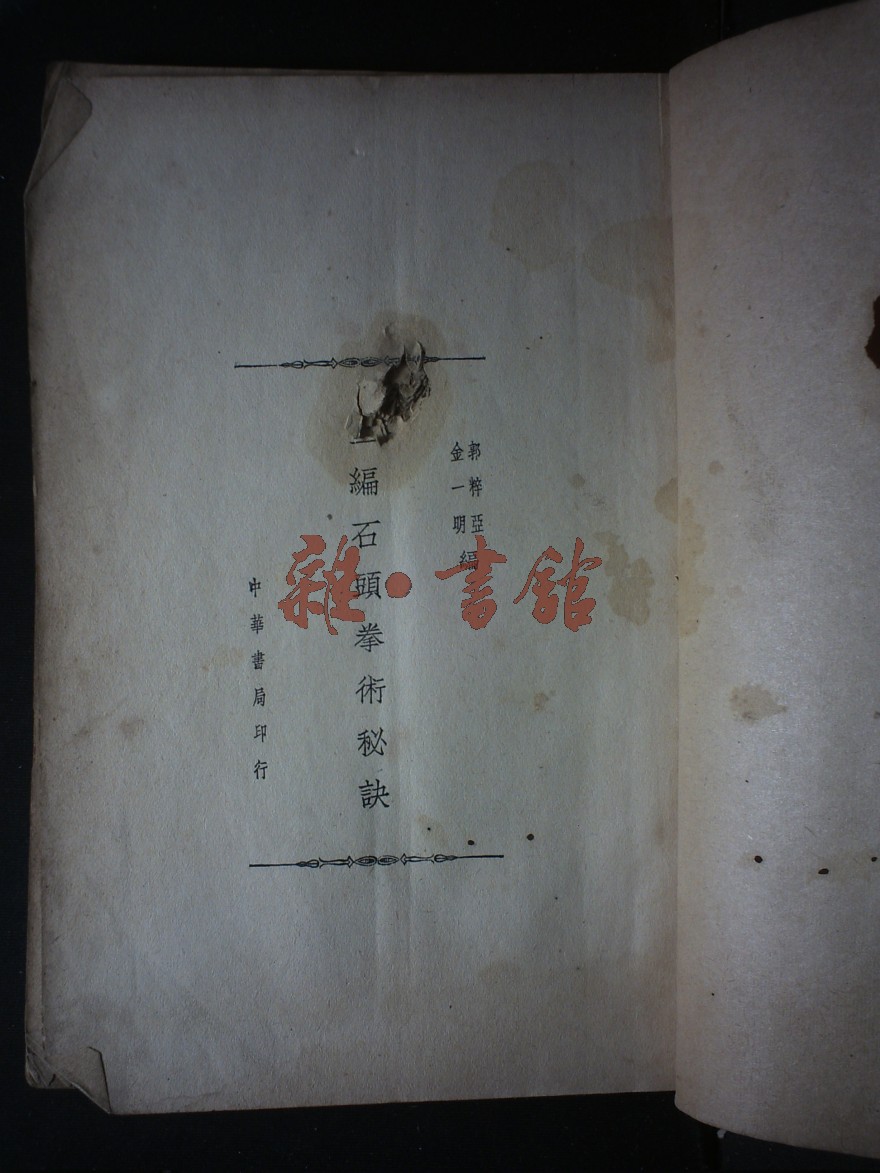 郭粹亞
金一明
編
編石頭拳術秘訣
中華書局印行
雜·書館